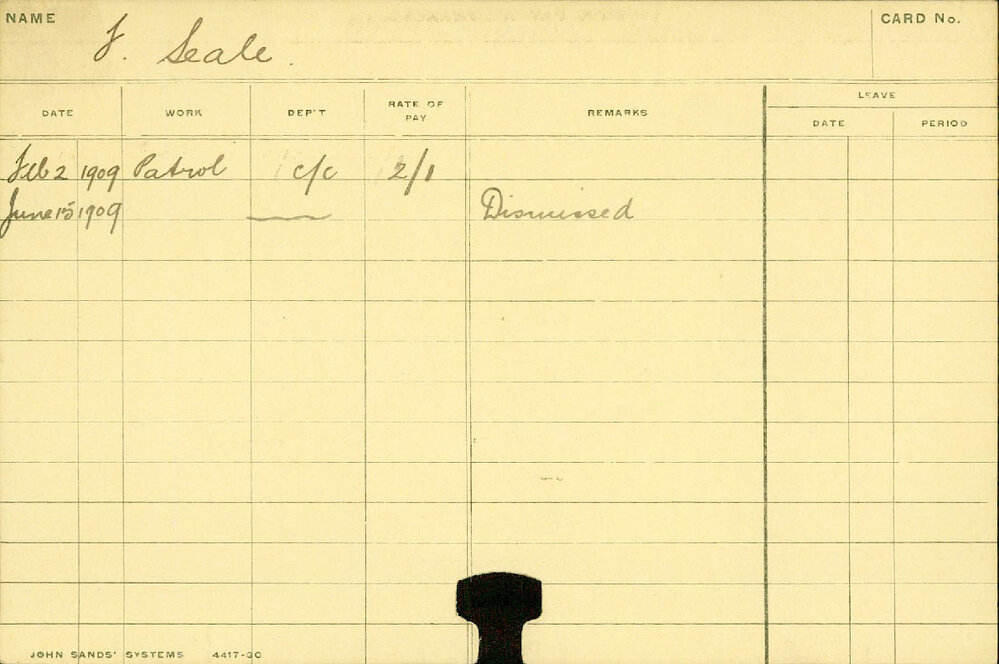 NAME F. Seale. CARD No.
LEAVE
DATE WORK DEP'T RATE OF PAY REMARKS DATE PERIOD
Feb 2 1909 Patrol c/c 2/1
June 15 1909 Dismissed
JOHN SANDS' SYSTEMS 4417-30